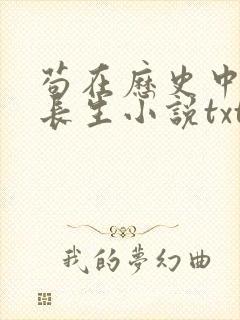 苟在歷史中
長生小說txt
我的夢幻曲